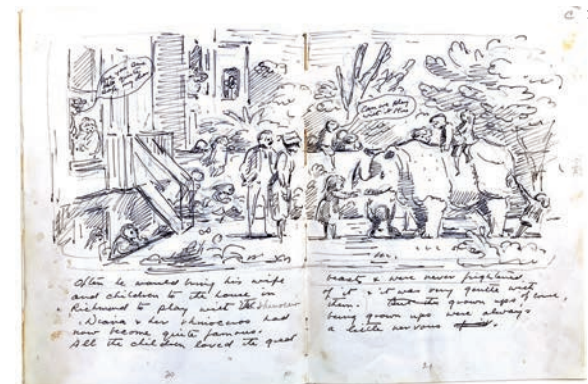 C
Are you sure
quite
safe
Can we play
with it Miss
Often he would bring his wife
and children to the house in
Richmond to play with the Rhinoceros
. Diana & her rhinoceros had
now become quite famous.
All the children loved the great
20
beast & were never frightened
of it, it was very gentle with
them. But the grown ups of course,
being grown ups were always
a little nervous
21